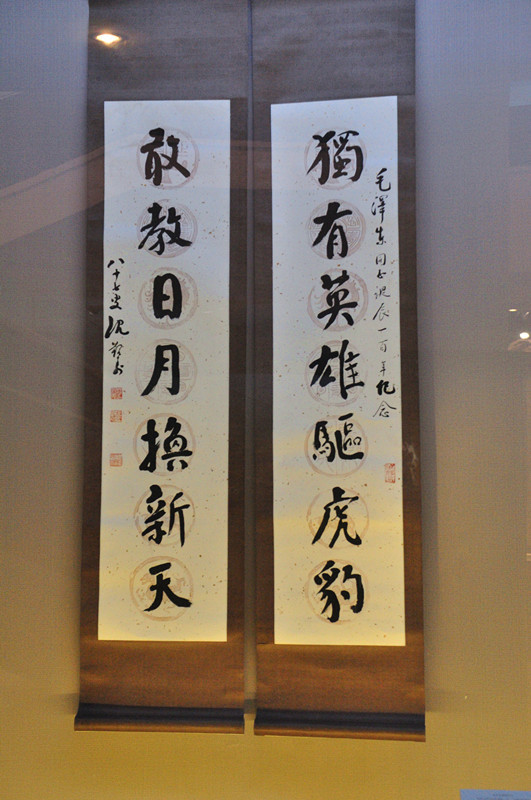 毛澤东同志诞辰一百年纪念
獨有英雄驅虎豹
敢教日月換新天
八十七叟沈